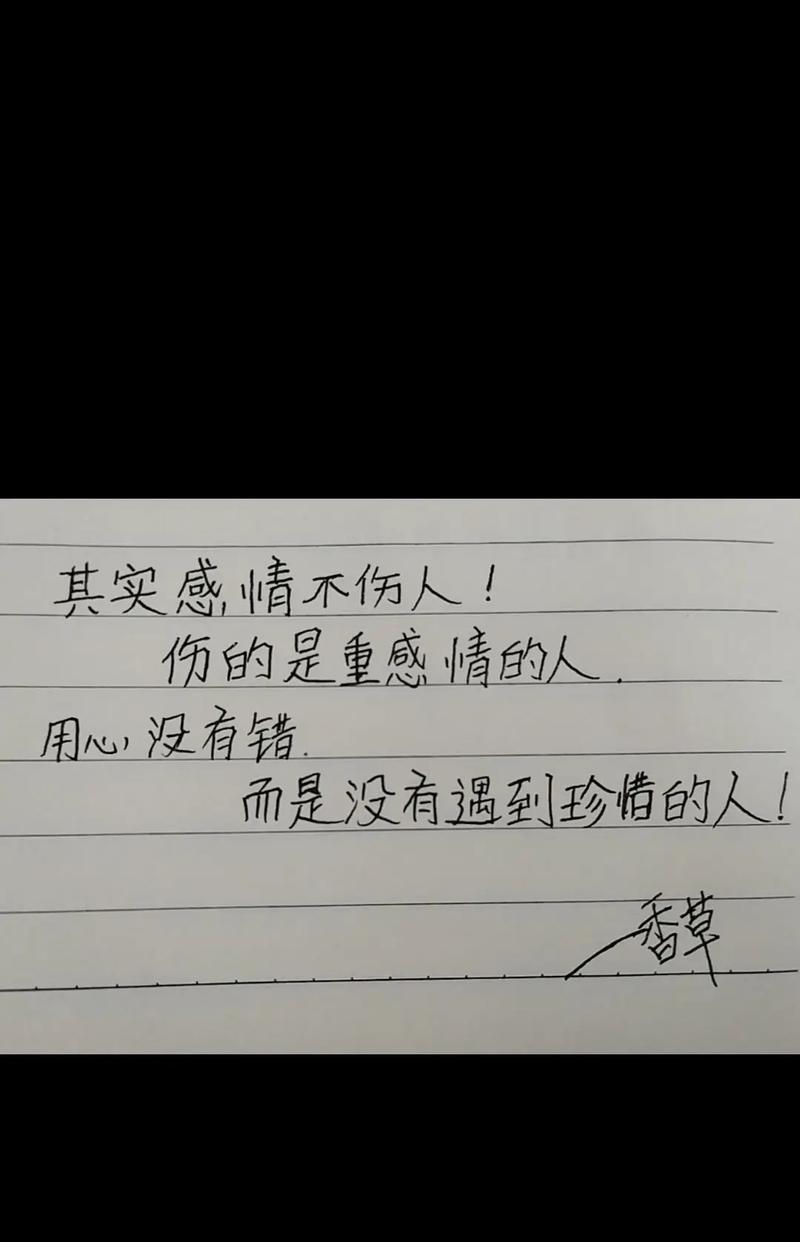 其实感情不伤人！
伤的是重感情的人.
用心,没有错.
而是没有遇到珍惜的人！
香草